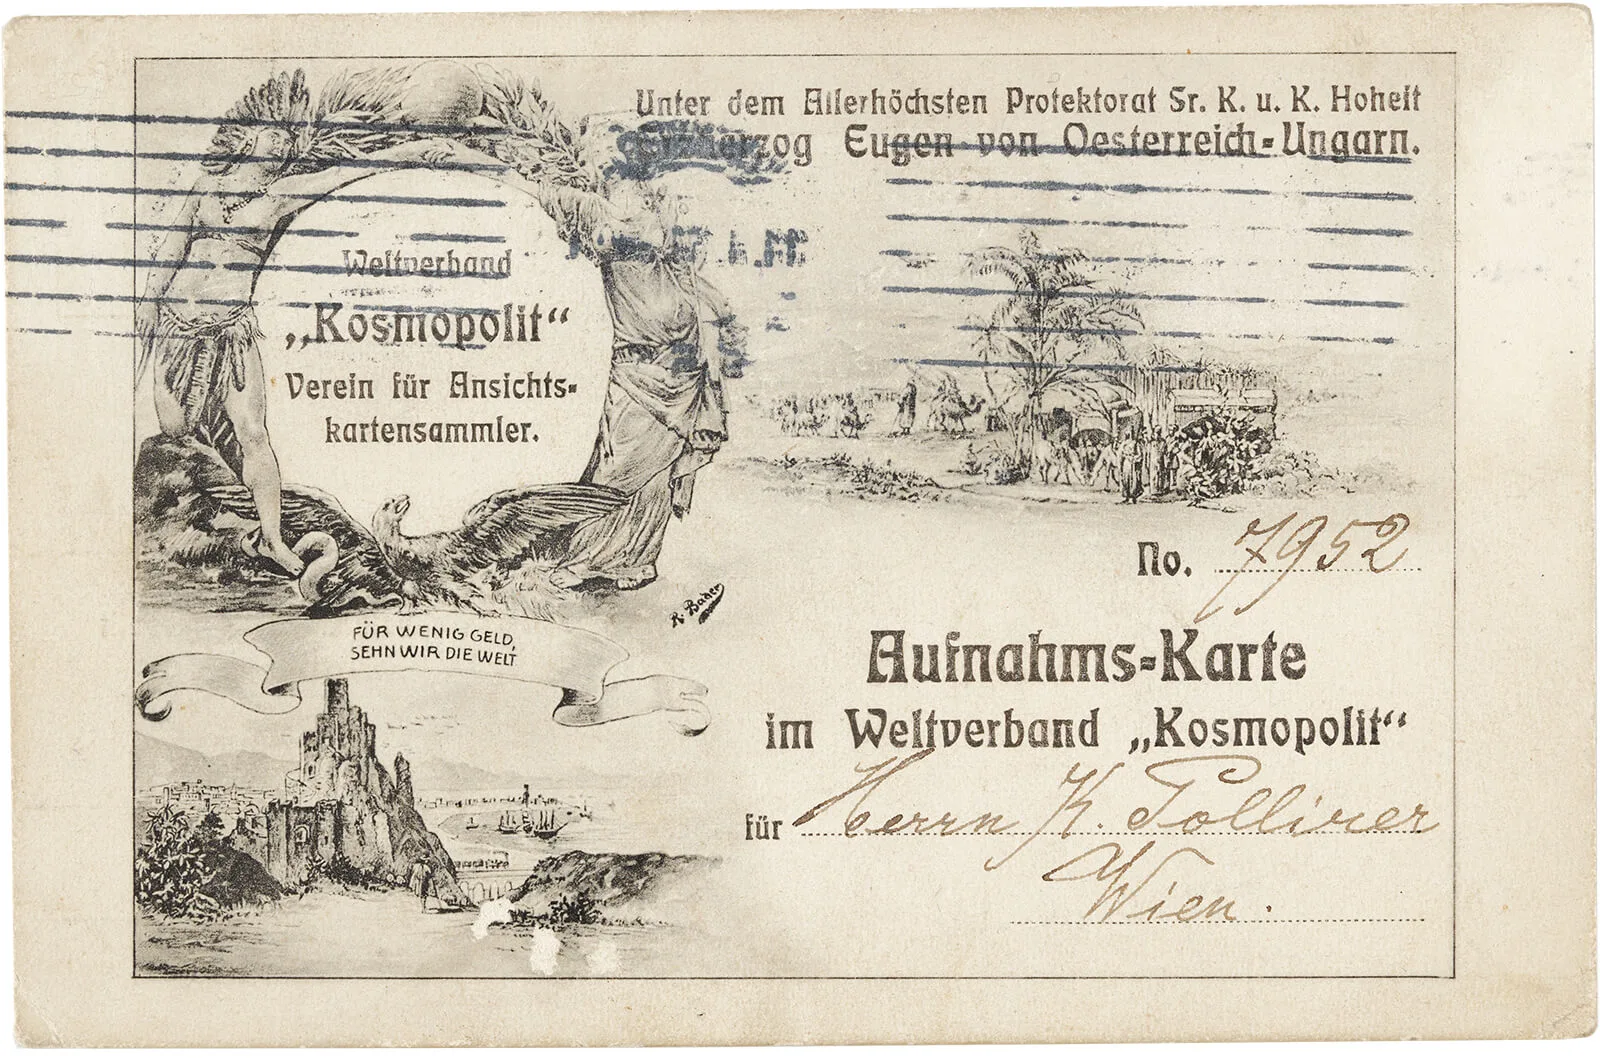 Unter dem Allerhöchsten Protektorat Sr. K. u. K. Hoheit
Erzherzog Eugen von Oesterreich-Ungarn.
Weltverband
„Kosmopolit“
Verein für Ansichts-
kartensammler.
R. Bader
FÜR WENIG GELD,
SEHN WIR DIE WELT
No. 7952
Aufnahms-Karte
im Weltverband „Kosmopolit“
für Herrn K. Pollirer
Wien.